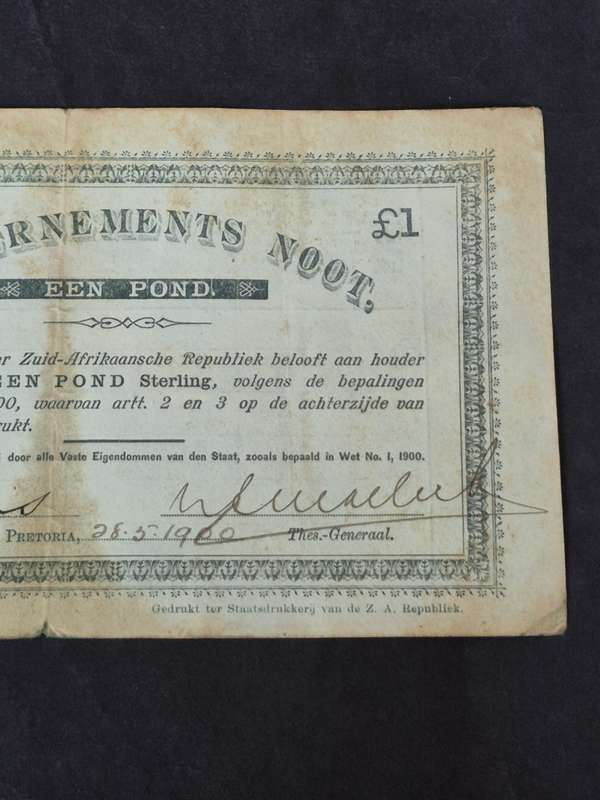 ERNEMENTS NOOT,
£1
EEN POND.
er Zuid-Afrikaansche Republiek belooft aan houder
EEN POND Sterling, volgens de bepalingen
00, waarvan artt. 2 en 3 op de achterzijde van
rukt.
door alle Vaste Eigendommen van den Staat, zooals bepaald in Wet No. 1, 1900.
PRETORIA, 28.5.1900 Thes.-Generaal.
Gedrukt ter Staatsdrukkerij van de Z. A. Republiek.